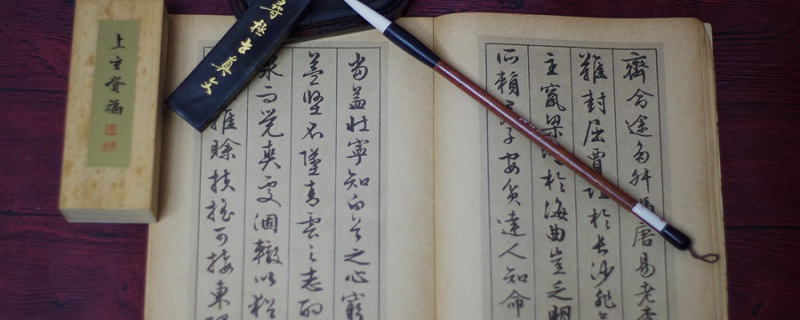 齊命途多舛馮唐易老李
難封屈賈誼於長沙非
主竄梁於海曲豈乏明
所賴君子安貧達人知命
當益壯寧知白首之心窮
益堅不墜青雲之志酌
泉而覺爽處涸轍以猶
雖賒扶搖可接東